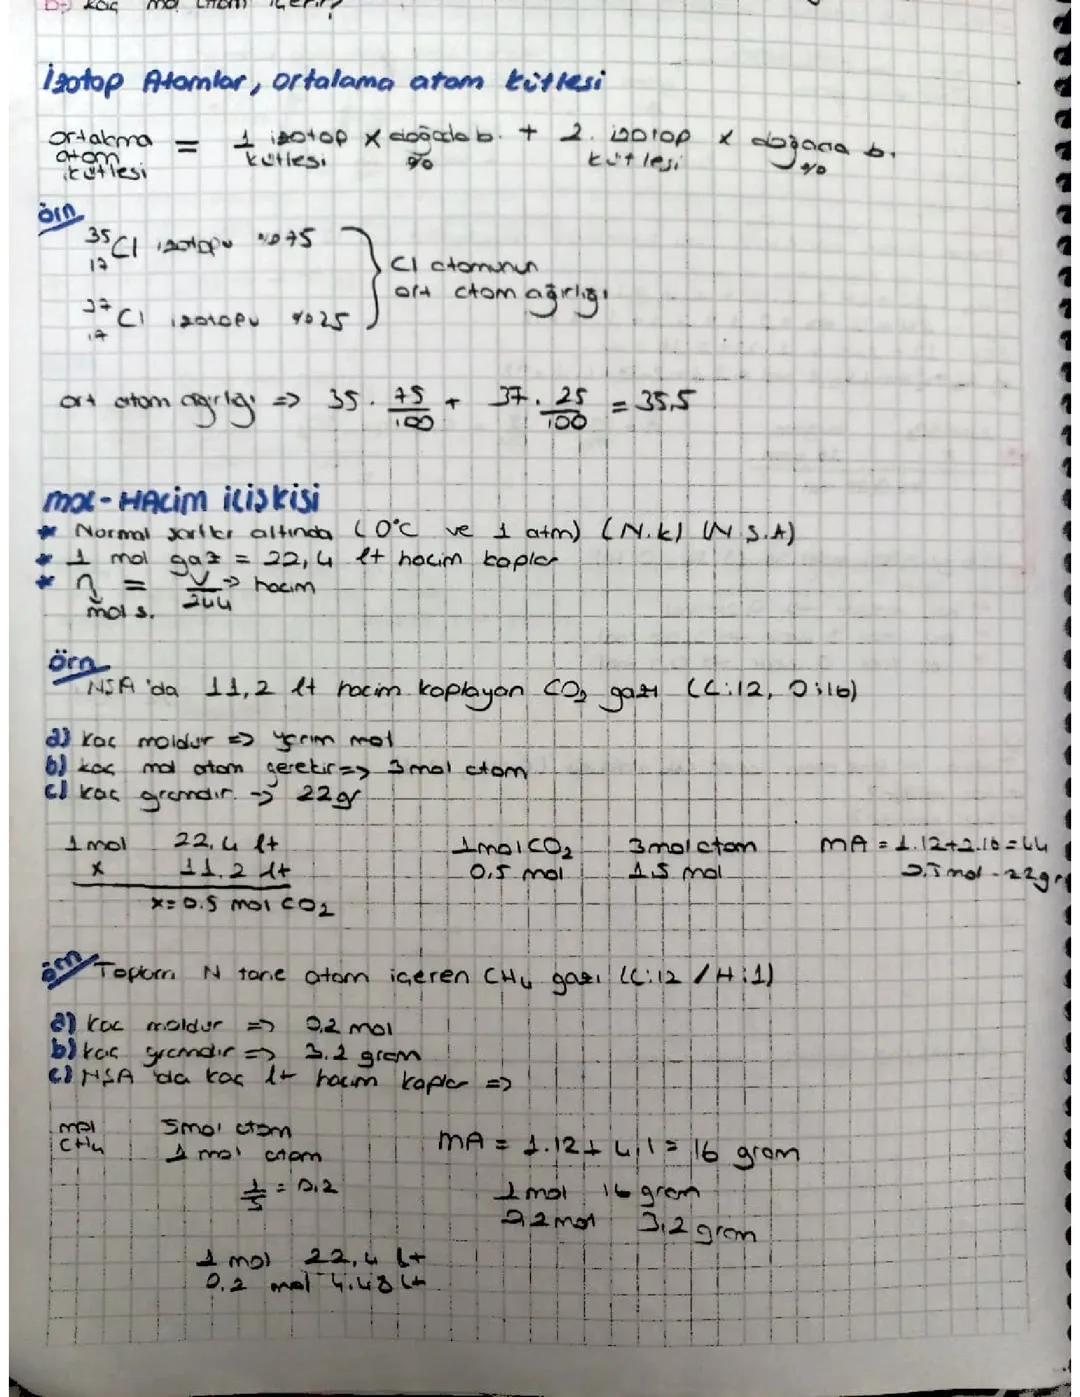 b-) kaç mol atom içerir?
İzotop Atomlar, ortalama atom kütlesi
ortalama atom kütlesi = 1 izotop kütlesi x doğada b. % + 2. izotop kütlesi x doğada b. %
örn
35 17 Cl izotopu %75
37 17 Cl izotopu %25
Cl atomunun
ort atom ağırlığı
ort atom ağırlığı => 35 . 75/100 + 37 . 25/100 = 35,5
mol - HAcim ilişkisi
* Normal şartlar altında (0°C ve 1 atm) (N.K) (N.Ş.A)
* 1 mol gaz = 22,4 lt hacim kaplar
* n = V -> hacim
mol s.
örn
NŞA'da 11,2 lt hacim kaplayan CO2 gazı (C:12, O:16)
a) kaç moldur => yarım mol
b) kaç mol atom gerekir => 3 mol atom
c) kaç gramdır -> 22gr
1 mol 22,4 lt
x 11.2 lt
x = 0.5 mol CO2
1 mol CO2 3 mol atom
0,5 mol 1,5 mol
MA = 1.12+2.16 = 44
0.5 mol - 22gr
örn Toplam N tane atom içeren CH4 gazı (C:12 / H:1)
a) kaç moldur => 0,2 mol
b) kaç gramdır => 3.2 gram
c) NŞA'da kaç lt hacim kaplar =>
mol CH4 5mol atom
1 mol atom
1/5 = 0,2
MA = 1.12 + 4.1 = 16 gram
1 mol 16 gram
0.2 mol 3,2 gram
1 mol 22,4 lt
0.2 mol 4.48 lt